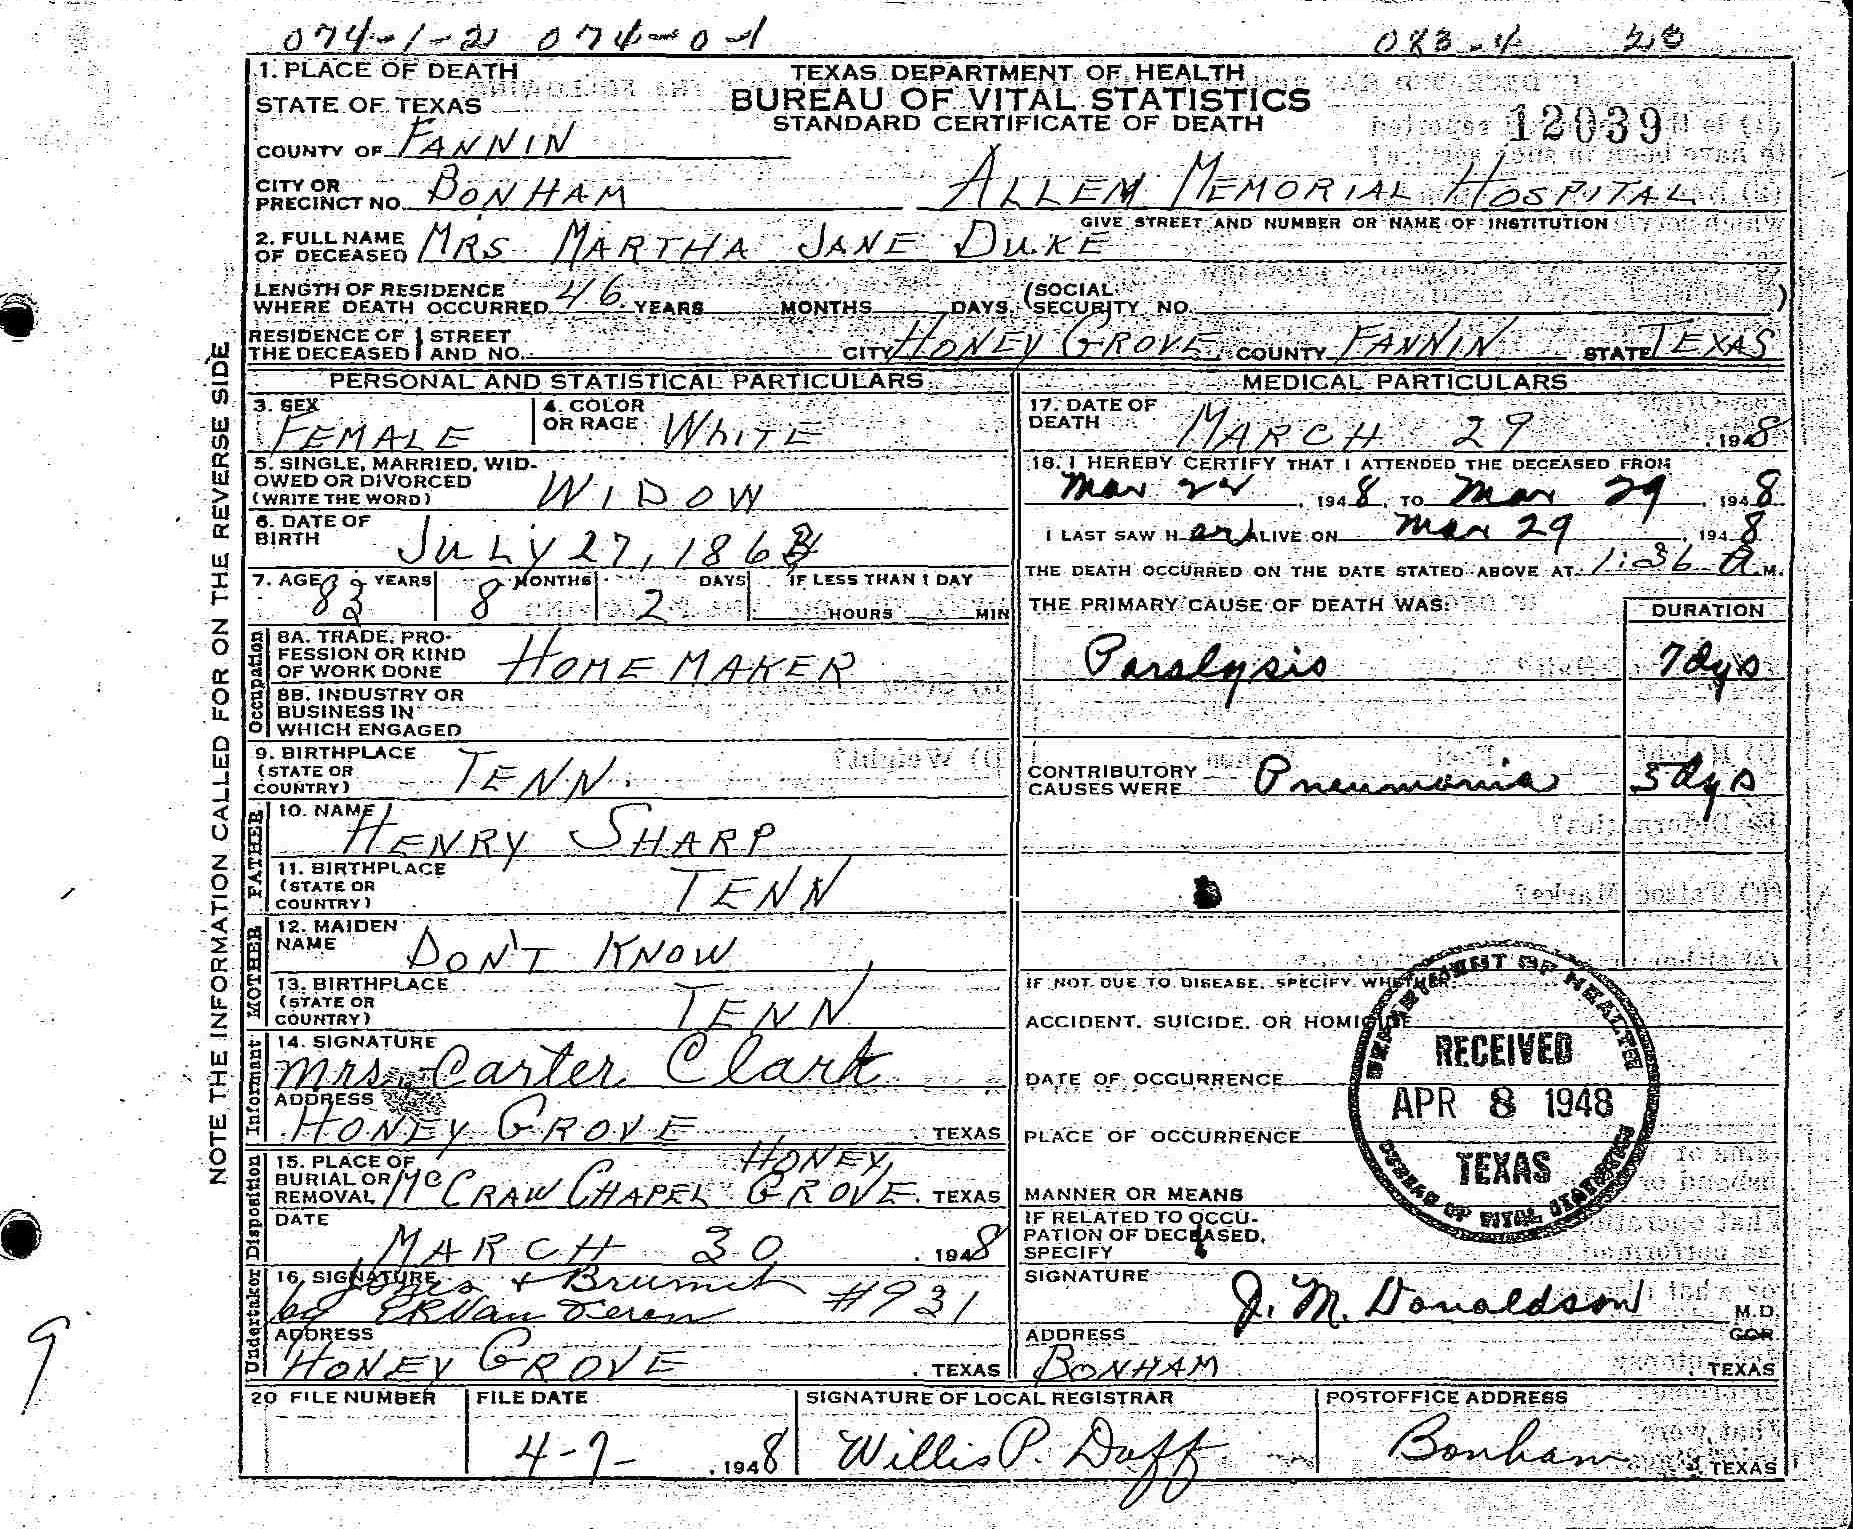 074-1-2 074-0-1 083-4 20
1. PLACE OF DEATH
STATE OF TEXAS
COUNTY OF FANNIN
TEXAS DEPARTMENT OF HEALTH
BUREAU OF VITAL STATISTICS
STANDARD CERTIFICATE OF DEATH
12039
CITY OR
PRECINCT NO. BONHAM ALLEN MEMORIAL HOSPITAL
GIVE STREET AND NUMBER OR NAME OF INSTITUTION
2. FULL NAME
OF DECEASED MRS MARTHA JANE DUKE
LENGTH OF RESIDENCE
WHERE DEATH OCCURRED 46 YEARS MONTHS DAYS (SOCIAL
SECURITY NO. )
RESIDENCE OF
THE DECEASED STREET
AND NO. CITY HONEY GROVE COUNTY FANNIN STATE TEXAS
NOTE THE INFORMATION CALLED FOR ON THE REVERSE SIDE
PERSONAL AND STATISTICAL PARTICULARS
3. SEX
FEMALE
4. COLOR
OR RACE WHITE
5. SINGLE, MARRIED, WID-
OWED OR DIVORCED
(WRITE THE WORD) WIDOW
6. DATE OF
BIRTH JULY 27, 186
7. AGE 83 YEARS 8 MONTHS 2 DAYS IF LESS THAN 1 DAY
HOURS MIN
Occupation
8A. TRADE, PRO-
FESSION OR KIND
OF WORK DONE HOME MAKER
8B. INDUSTRY OR
BUSINESS IN
WHICH ENGAGED
9. BIRTHPLACE
(STATE OR
COUNTRY) TENN.
FATHER
10. NAME
HENRY SHARP
11. BIRTHPLACE
(STATE OR
COUNTRY) TENN
MOTHER
12. MAIDEN
NAME DON'T KNOW
13. BIRTHPLACE
(STATE OR
COUNTRY) TENN
Informant
14. SIGNATURE
Mrs. Carter Clark
ADDRESS
HONEY GROVE TEXAS
Disposition
15. PLACE OF
BURIAL OR
REMOVAL McCRAW CHAPEL HONEY
GROVE. TEXAS
DATE
MARCH 30 , 1948
Undertaker
16. SIGNATURE
Jones & Brumit
by #931
ADDRESS
HONEY GROVE , TEXAS
MEDICAL PARTICULARS
17. DATE OF
DEATH MARCH 29 , 1948
18. I HEREBY CERTIFY THAT I ATTENDED THE DECEASED FROM
Mar 22 , 1948, TO Mar 29 , 1948
I LAST SAW H er ALIVE ON Mar 29 , 1948
THE DEATH OCCURRED ON THE DATE STATED ABOVE AT 1:36 A.M.
THE PRIMARY CAUSE OF DEATH WAS: DURATION
Paralysis 7 dys
CONTRIBUTORY
CAUSES WERE Pneumonia 5 dys
IF NOT DUE TO DISEASE, SPECIFY WHETHER:
ACCIDENT, SUICIDE, OR HOMICIDE
DATE OF OCCURRENCE
PLACE OF OCCURRENCE
MANNER OR MEANS
IF RELATED TO OCCU-
PATION OF DECEASED,
SPECIFY
DEPARTMENT OF HEALTH
RECEIVED
APR 8 1948
TEXAS
BUREAU OF VITAL STATISTICS
SIGNATURE
J. M. Donaldson M.D.
COR.
ADDRESS
BONHAM , TEXAS
20 FILE NUMBER
FILE DATE
4-7- , 1948
SIGNATURE OF LOCAL REGISTRAR
Willis P. Duff
POSTOFFICE ADDRESS
Bonham , TEXAS
9